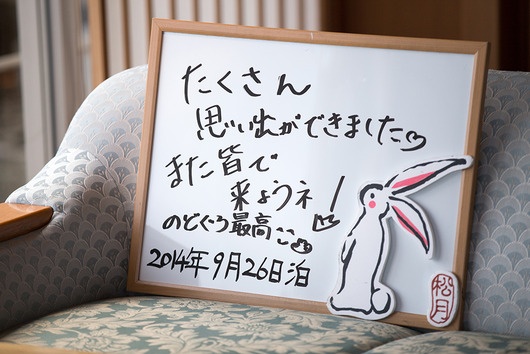 たくさん
思い出ができました♡
また皆で
来ようネ!
のどぐろ最高
2014年9月26日泊
松月